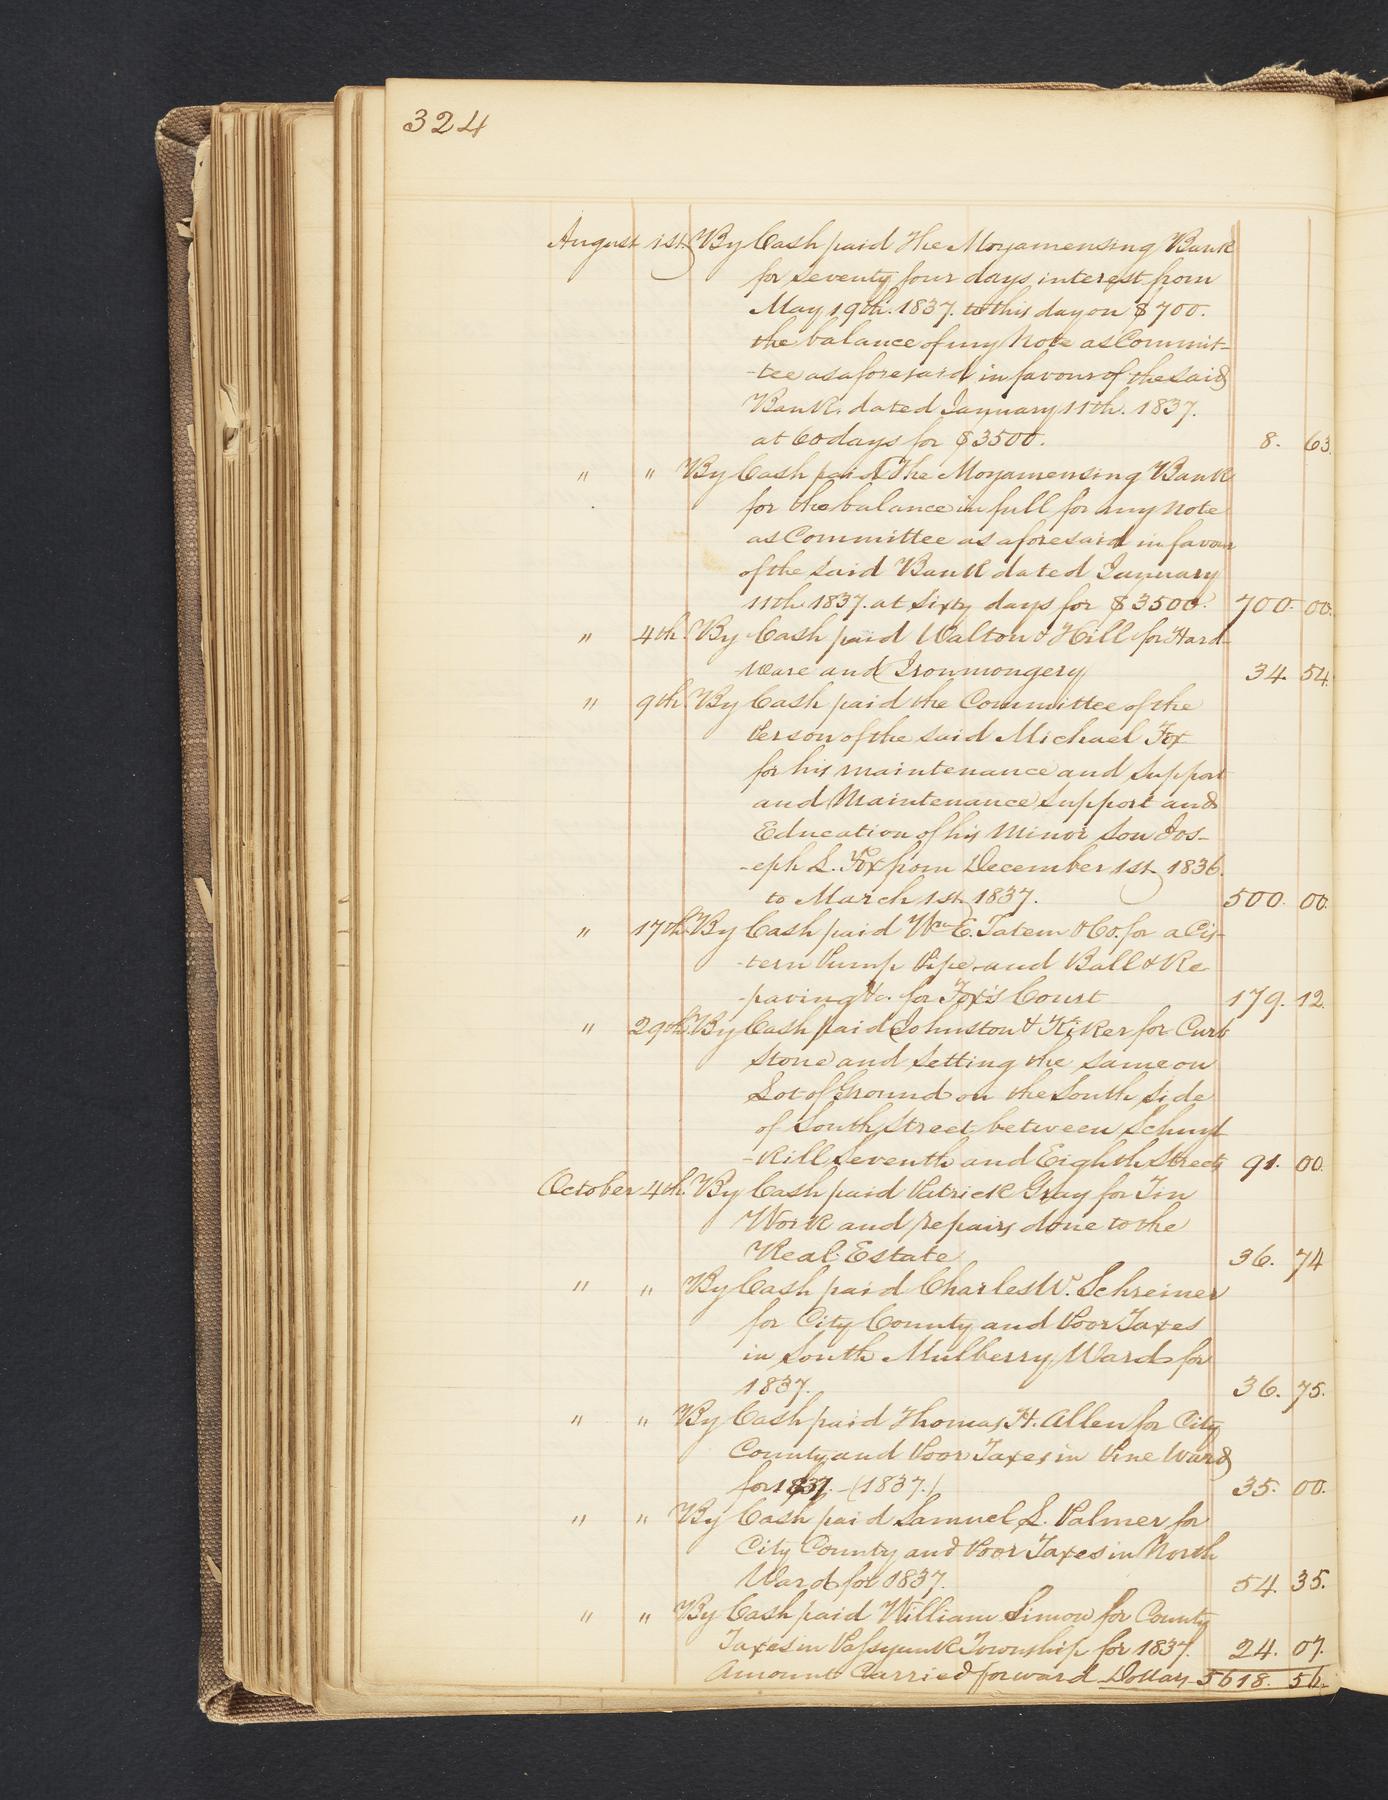 324
August 1st By Cash paid The Moyamensing Bank
for seventy four days interest from
May 19th. 1837. to this day on $700.
the balance of my Note as Commit-
-tee as aforesaid in favour of the said
Bank. dated January 11th. 1837.
at 60 days for $3500. 8. 63.
" " By Cash paid The Moyamensing Bank
for the balance in full for my Note
as Committee as aforesaid in favour
of the said Bank dated January
11th 1837. at sixty days for $3500. 700. 00.
" 4th. By Cash paid Walton & Hill for Hard-
-ware and Ironmongery 34. 54.
" 9th. By Cash paid the Committee of the
Person of the said Michael Fox
for his maintenance and support
and Maintenance Support and
Education of his Minor Son Jos-
-eph L. Fox from December 1st. 1836.
to March 1st. 1837. 500. 00.
" 17th. By Cash paid Wm. E. Tatem & Co. for a Cis-
-tern Pump Pipe and Ball & Re-
-paving &c. for Fox's Court 179. 12.
" 29th. By Cash paid Johnston & Kiker for Curb
stone and setting the same on
Lot of Ground on the South side
of South Street between Schuyl-
-kill Seventh and Eighth Streets 91. 00.
October 4th. By Cash paid Patrick Gray for Tin
Work and repairs done to the
Real Estate 36. 74
" " By Cash paid Charles W. Schreiner
for City County and Poor Taxes
in South Mulberry Ward for
1837. 36. 75.
" " By Cash paid Thomas H. Allen for City
County and Poor Taxes in Pine Ward
for 1837. - (1837.) 35. 00.
" " By Cash paid Samuel L. Palmer for
City County and Poor Taxes in North
Ward for 1837. 54. 35.
" " By Cash paid William Simon for County
Taxes in Passyunk Township for 1837. 24. 07.
Amount Carried forward Dollars 5618. 56.